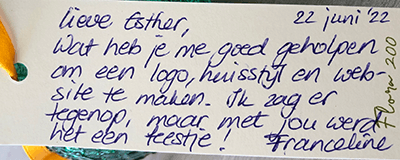 lieve Esther, 22 juni '22
Wat heb je me goed geholpen
om een logo, huisstijl en web-
site te maken. Ik zag er
tegenop, maar met jou werd
het een feestje! Franceline
Flora 200